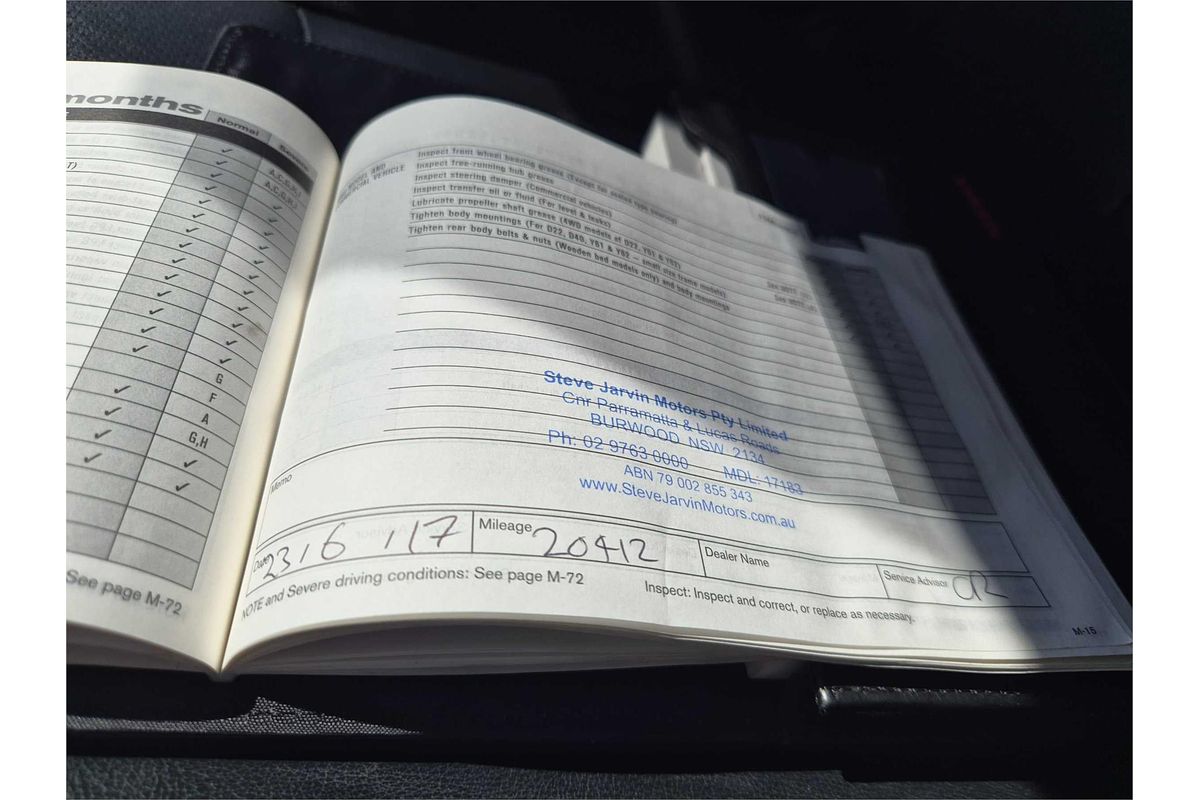 months
Normal
A,C,E,I
A,C,G,H,I
G
F
A
G,H
See page M-72
Inspect front wheel bearing grease (Except for sealed type bearing)
Inspect free-running hub grease
Inspect steering damper (Commercial vehicles)
Inspect transfer oil or fluid (For level & leaks)
Lubricate propeller shaft grease (4WD models of D22, Y61 & Y62)
Tighten body mountings (For D22, D40, Y61 & Y62 – small size frame models)
Tighten rear body bolts & nuts (Wooden bed models only) and body mountings
See NOTE
See NOTE
Steve Jarvin Motors Pty Limited
Cnr Parramatta & Lucas Roads
BURWOOD NSW 2134
Ph: 02 9763 0000 MDL: 17183
ABN 79 002 855 343
www.SteveJarvinMotors.com.au
Memo
Date 23/6/17 Mileage 20412 Dealer Name Service Advisor
NOTE and Severe driving conditions: See page M-72
Inspect: Inspect and correct, or replace as necessary.
M-15